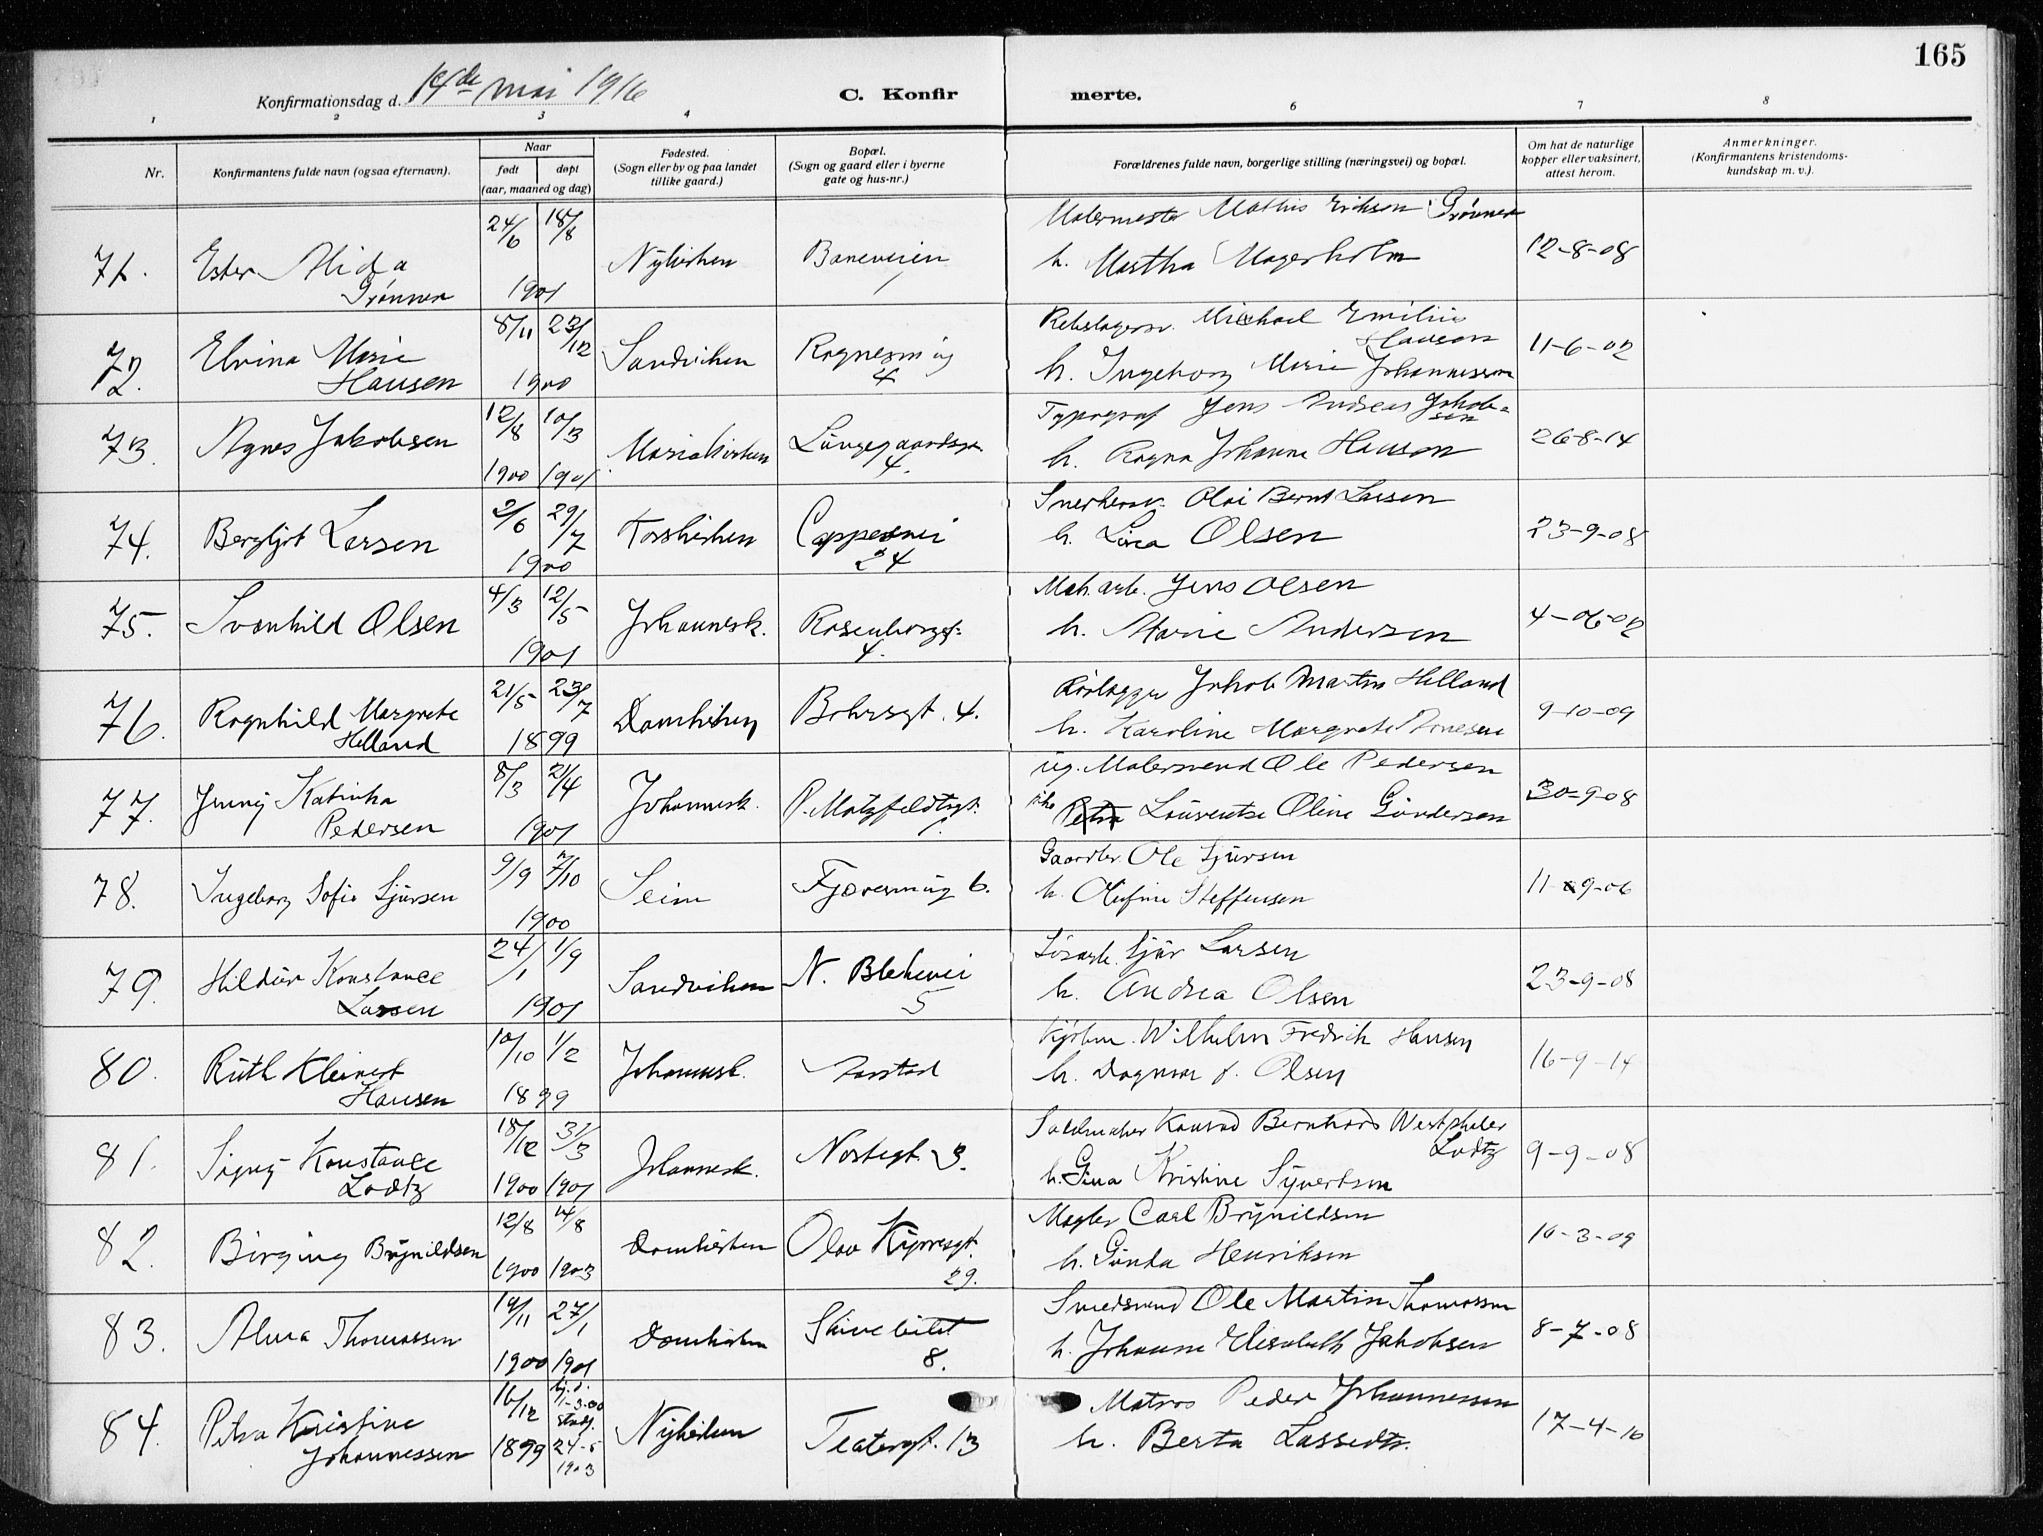 165
Konfirmationsdag d. 14de mai 1916
C. Konfirmerte.
1 2 3 4 6 7 8
Nr.
Konfirmantens fulde navn (ogsaa efternavn).
Naar
født
døpt
(aar, maaned og dag)
Fødested.
(Sogn eller by og paa landet
tillike gaard.)
Bopæl.
(Sogn og gaard eller i byerne
gate og hus-nr.)
Forældrenes fulde navn, borgerlige stilling (næringsvei) og bopæl.
Om hat de naturlige
kopper eller vaksinert,
attest herom.
Anmerkninger.
(Konfirmantens kristendoms-
kundskap m. v.).
71. Ester Alida
Grønner
24/6 18/8
1901
Nykirken
Baneveien
1
Malermester Mathis Eriksen Grønner
h. Martha Magerholm
12-8-08
72. Elvina Marie
Hansen
8/11 23/12
1900
Sandviken
4
Michael Emilius
Hansen
h. Ingeborg Marie Johannessen
11-6-02
73. Agnes Jakobsen
12/8 10/3
1900 1901
Mariakirken
Lungegaardsgt
4.
Typograf Jens Andreas Jakob-
sen
h. Ragna Johanne Hansen
26-8-14
74. Bergljot Larsen
2/6 29/7
1900
Korskirken
Cappesvei
24
Olai Bernt Larsen
h. Lina Olsen
23-9-08
75. Svanhild Olsen
4/3 12/5
1901
Johannesk.
Rosenborggt.
4.
Mek. arb. Jens Olsen
h. Marie Andersen
4-06-02
76. Ragnhild Margrete
Helland
21/5 23/7
1899
Domkirken
Bohrsgt. 4.
Rørlægger Jakob Martin Helland
h. Karoline Margrete Arnesen
9-10-09
77. Jenny Katinka
Pedersen
8/3 21/4
1901
Johannesk.
P. Motzfeldtsgt.
1.
ug. Malersvend Ole Pedersen
pike Petra Lauventse Oline Gundersen
30-9-08
78. Ingeborg Sofie Sjursen
9/9 7/10
1900
Seim
Fjæresmug 6.
Gaardbr. Ole Sjursen
h. Olufine Steffensen
11-9-06
79. Hildur Konstance
Larsen
24/1 1/9
1901
Sandviken
N. Blekevei
5
Løsarb. Sjur Larsen
h. Andrea Olsen
23-9-08
80. Ruth Kleinert
Hansen
10/10 1/2
1899
Johannesk.
Aarstad
Kjøbm. Wilhelm Fredrik Hansen
h. Dagmar f. Olsen
16-9-14
81. Signy Konstance
Lodtz
18/12 31/3
1900 1901
Johannesk.
Nostegt. 3.
Salmaker Konrad Bernhard Westphaler
Lodtz
h. Gina Kristine Syvertsen
9-9-08
82. Birging Brynildsen
12/8 14/8
1900 1903
Domkirken
Olav Kyrresgt.
29.
Mægler Carl Brynildsen
h. Gunda Henriksen
10-3-09
83. Alma Thomassen
19/11 27/1
1900 1901
Domkirken
Skivebilet
8.
Smedsvend Ole Martin Thomassen
h. Johanne Elisabeth Jakobsen
8-7-08
84. Petra Kristine
Johannessen
16/12 hj.d.
11-3-00
stadf.
1899 24-5
1903
Nykirken
Teatergt. 13
Matros Peder Johannessen
h. Berta Lassedtr.
17-4-10